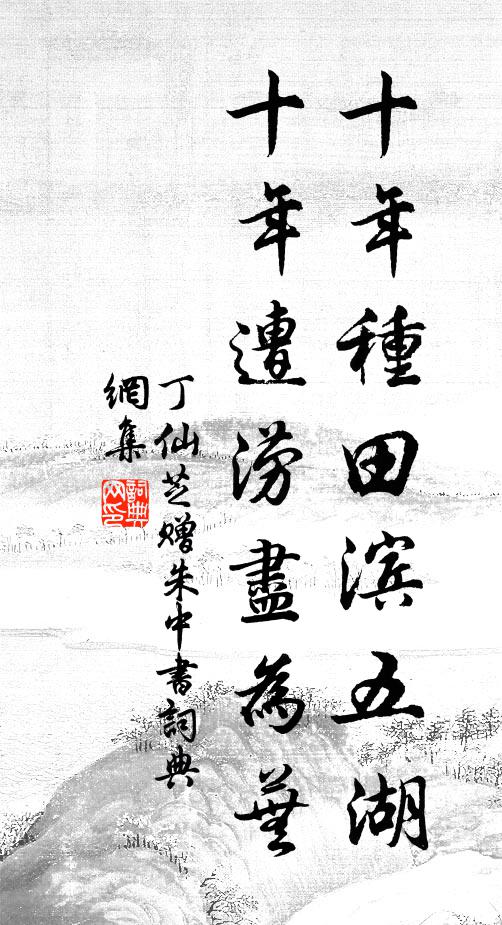 十年種田滨五湖
十年遭涝盡為蕪
丁仙芝赠朱中書詞典
網集
詞典网印